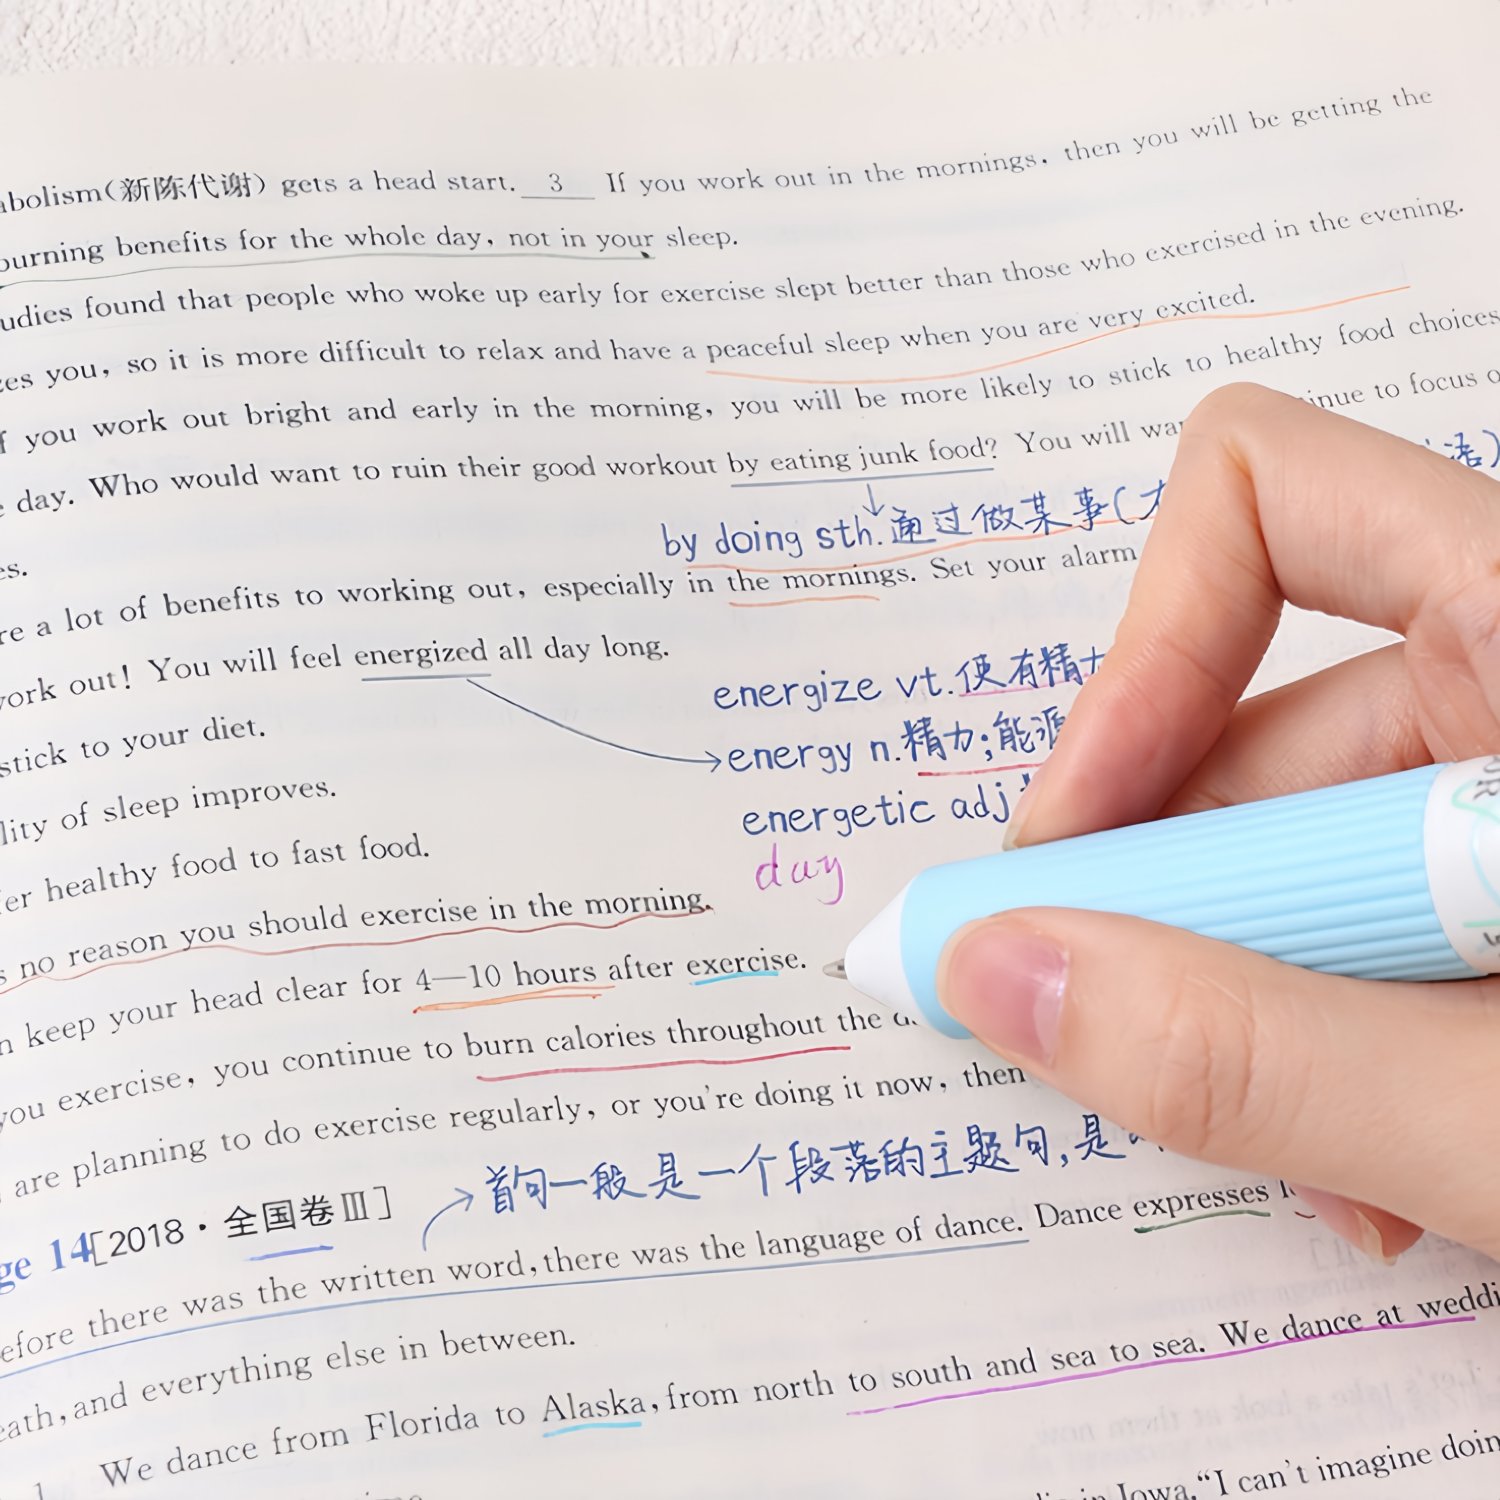 abolism(新陈代谢) gets a head start. 3 If you work out in the mornings, then you will be getting the
burning benefits for the whole day, not in your sleep.
udies found that people who woke up early for exercise slept better than those who exercised in the evening.
zes you, so it is more difficult to relax and have a peaceful sleep when you are very excited.
f you work out bright and early in the morning, you will be more likely to stick to healthy food choices
e day. Who would want to ruin their good workout by eating junk food? You will wa inue to focus o
by doing sth. 通过做某事( 语)
es.
re a lot of benefits to working out, especially in the mornings. Set your alarm
work out! You will feel energized all day long.
energize vt. 使有精力
stick to your diet.
energy n. 精力;能源
lity of sleep improves.
energetic adj
fer healthy food to fast food.
day
s no reason you should exercise in the morning.
n keep your head clear for 4—10 hours after exercise.
you exercise, you continue to burn calories throughout the
are planning to do exercise regularly, or you're doing it now, then
首句一般是一个段落的主题句,是
ge 14 [2018·全国卷Ⅲ]
efore there was the written word, there was the language of dance. Dance expresses
eath, and everything else in between.
We dance from Florida to Alaska, from north to south and sea to sea. We dance at weddi
1
in Iowa, “I can't imagine doin